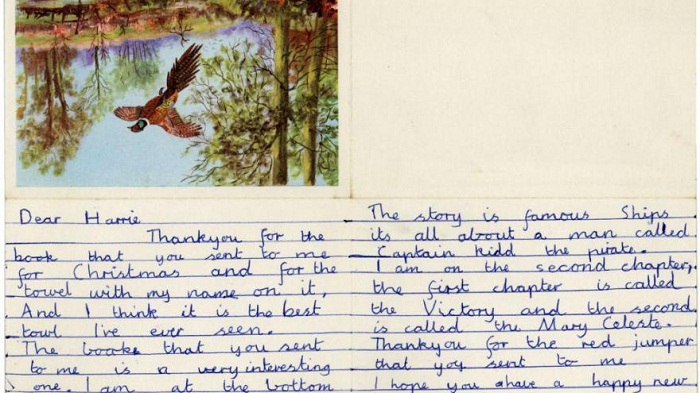 Dear Harrie
Thankyou for the
book that you sent to me
for Christmas and for the
towel with my name on it,
And I think it is the best
towl I've ever seen.
The book that you sent
to me is a very interesting
one. I am at the bottom
The story is famous Ships
its all about a man called
Captain Kidd the pirate.
I am on the second chapter,
the first chapter is called
the Victory and the second
is called the Mary Celeste.
Thankyou for the red jumper
that you sent to me
I hope you have a happy new